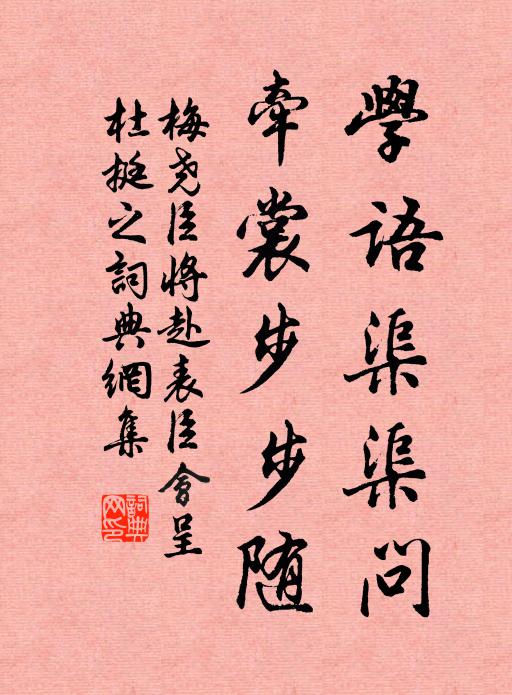 學語渠渠問
牽裳步步随
梅尧臣將赴表臣會呈
杜挺之詞典網集
詞典
网印